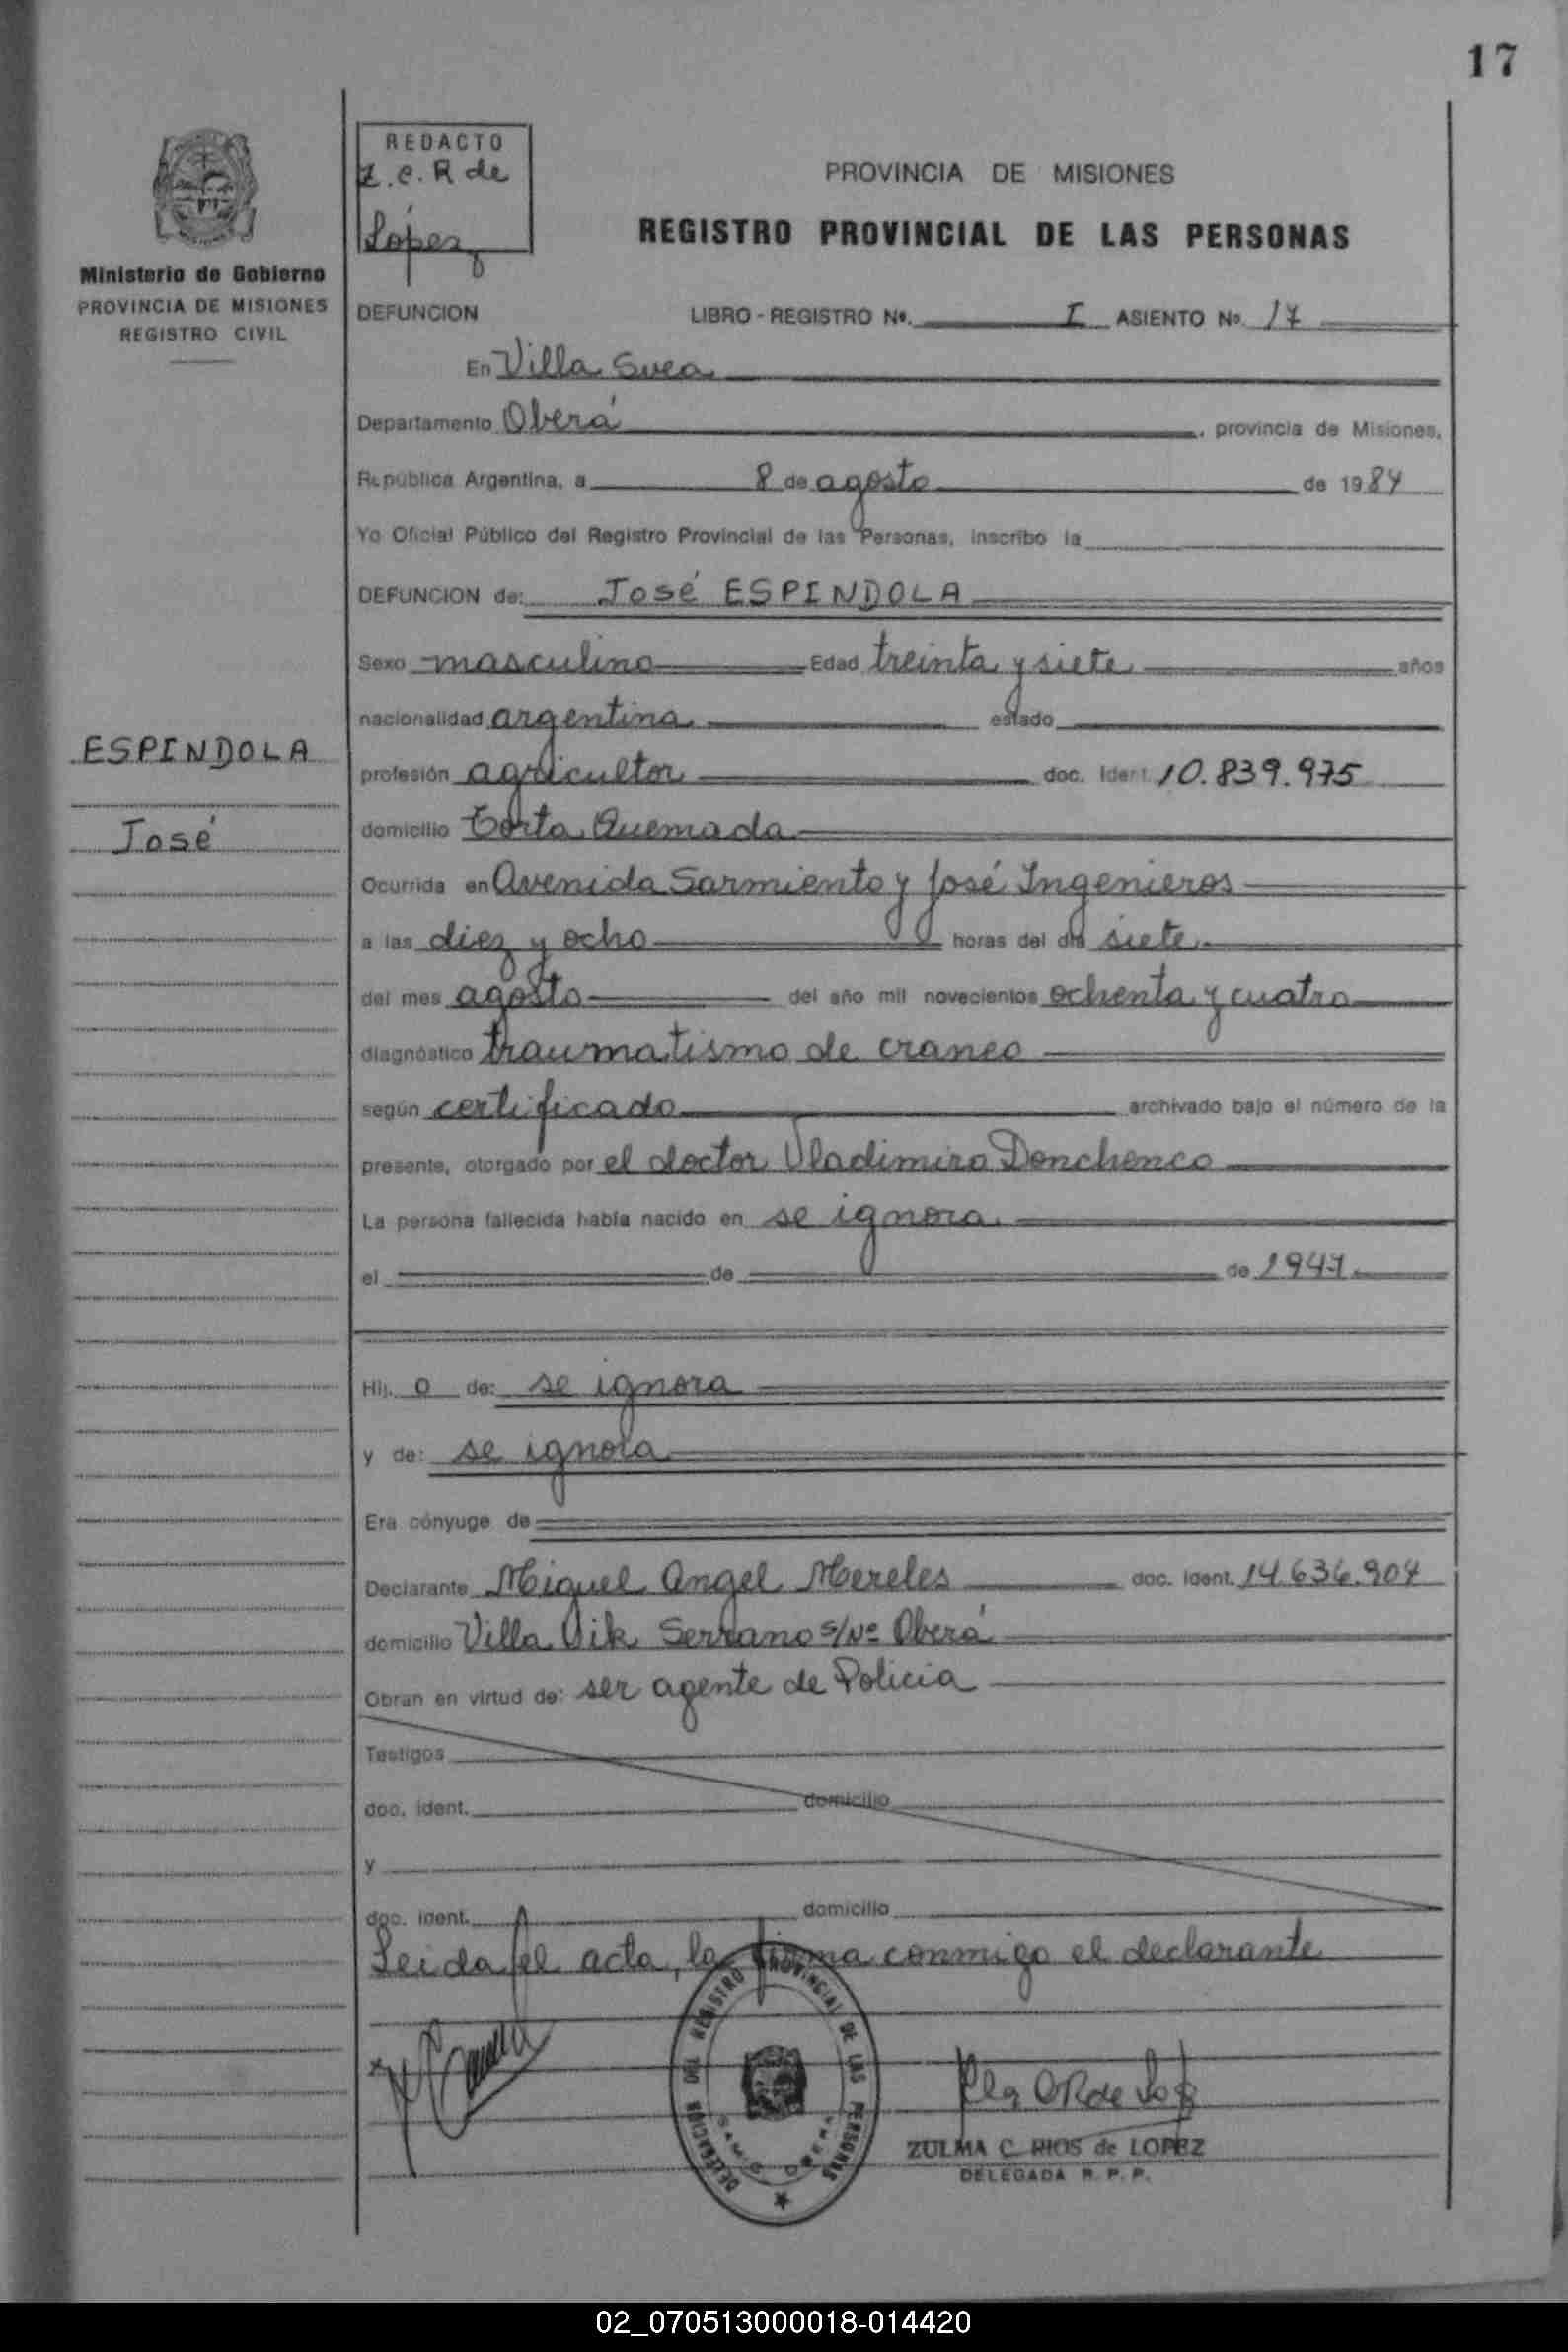 17
REDACTO
Z.C.R de
López
Ministerio de Gobierno
PROVINCIA DE MISIONES
REGISTRO CIVIL
PROVINCIA DE MISIONES
REGISTRO PROVINCIAL DE LAS PERSONAS
DEFUNCION LIBRO - REGISTRO Nº. I ASIENTO Nº 17
En Villa Svea
Departamento Oberá, provincia de Misiones,
República Argentina, a 8 de agosto de 1984
Yo Oficial Público del Registro Provincial de las Personas, inscribo la
DEFUNCION de: José ESPINDOLA
Sexo masculino Edad treinta y siete años
nacionalidad argentina estado
ESPINDOLA
profesión agricultor doc. ident. 10.839.975
José
domicilio Torta Quemada
Ocurrida en Avenida Sarmiento y José Ingenieros
a las diez y ocho horas del día siete
del mes agosto del año mil novecientos ochenta y cuatro
diagnóstico traumatismo de craneo
según certificado archivado bajo el número de la
presente, otorgado por el doctor Vladimiro Donchenco
La persona fallecida había nacido en se ignora
el de de 1947
Hij. o de: se ignora
y de: se ignora
Era cónyuge de
Declarante Miguel Angel Mereles doc. ident. 14.636.904
domicilio Villa Vik Serrano s/Nº Oberá
Obran en virtud de: ser agente de Policia
Testigos
doc. ident. domicilio
y
doc. ident. domicilio
Leida el acta, la firma conmigo el declarante
DELEGACION DEL REGISTRO PROVINCIAL DE LAS PERSONAS
OBERA
ZULMA C. RIOS de LOPEZ
DELEGADA R. P. P.
02_070513000018-014420